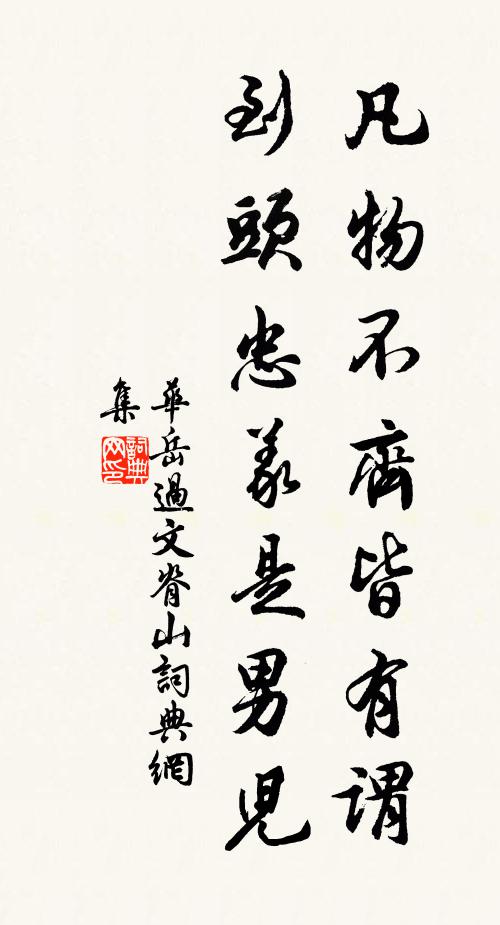 凡物不齊皆有謂
到頭忠義是男兒
華岳過文脊山詞典網
集
詞典
网印